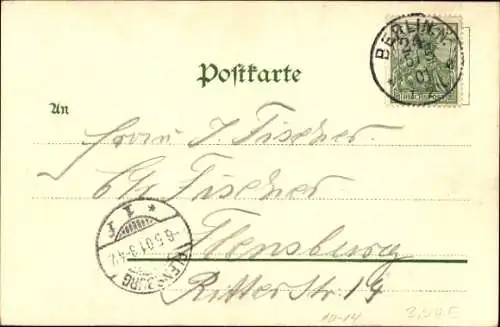 BERLIN.N.
24
5 5
01
Postkarte
An
Herrn J Fischer.
Fischer
Flensburg
Ritter Str. 14
FLENSBURG
-6.5.01.3-4
* 1 I
10-14